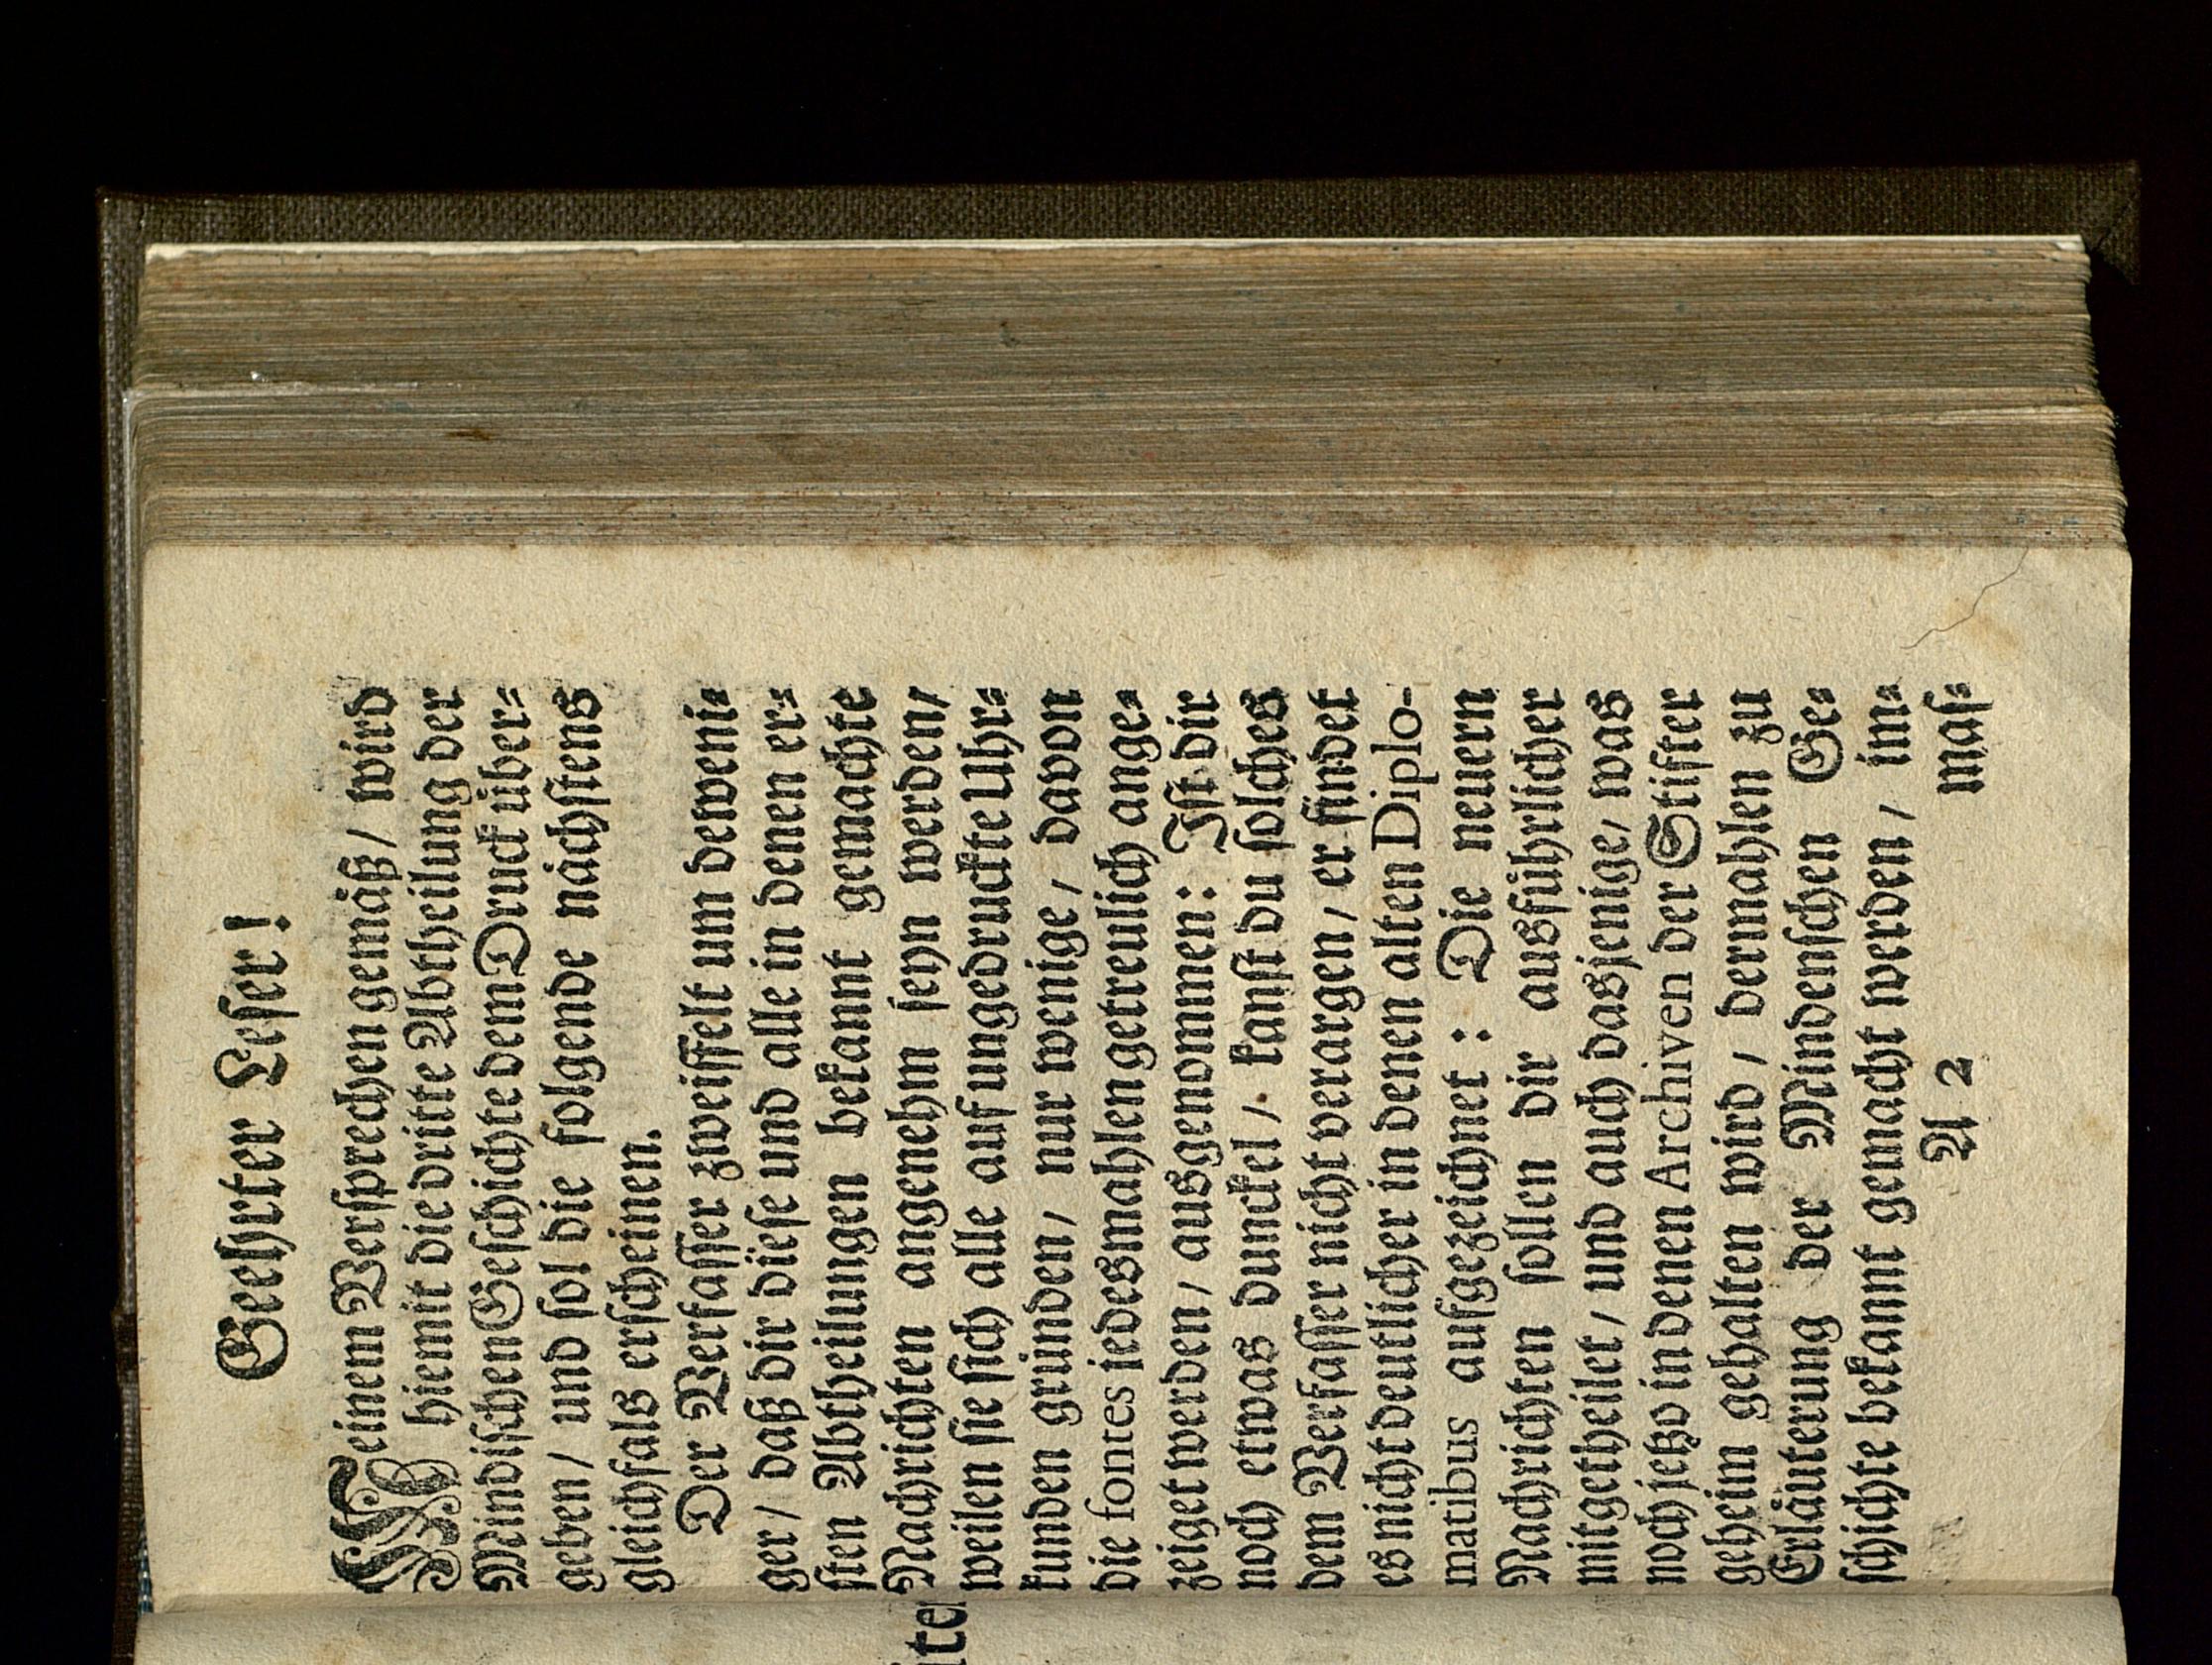 Geehrter Leser!
Meinem Versprechen gemäß / wird
hiemit die dritte Abtheilung der
Mindischen Geschichte dem Druck über=
geben / und sol die folgende nächstens
gleichfals erscheinen.
Der Verfasser zweiffelt um deweni=
ger / daß dir diese und alle in denen er=
sten Abtheilungen bekannt gemachte
Nachrichten angenehm seyn werden/
weilen sie sich alle auf ungedruckte Uhr=
kunden gründen / nur wenige / davon
die fontes iedesmahlen getreulich ange=
zeiget werden / ausgenommen: Ist dir
noch etwas dunckel / kanst du solches
dem Verfasser nicht verargen / er findet
es nicht deutlicher in denen alten Diplo-
matibus aufgezeichnet : Die neuern
Nachrichten sollen dir ausführlicher
mitgetheilet / und auch dasjenige / was
noch jetzo in denen Archiven der Stifter
geheim gehalten wird / dermahlen zu
Erläuterung der Mindenschen Ge=
schichte bekannt gemacht werden / im=
A 2 mas=